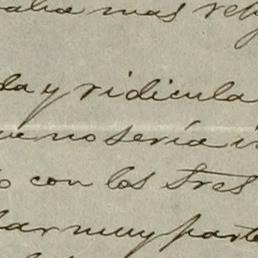 aba mas rep
da y ridicula
ue no sería i
o con los tres
lar muy parte